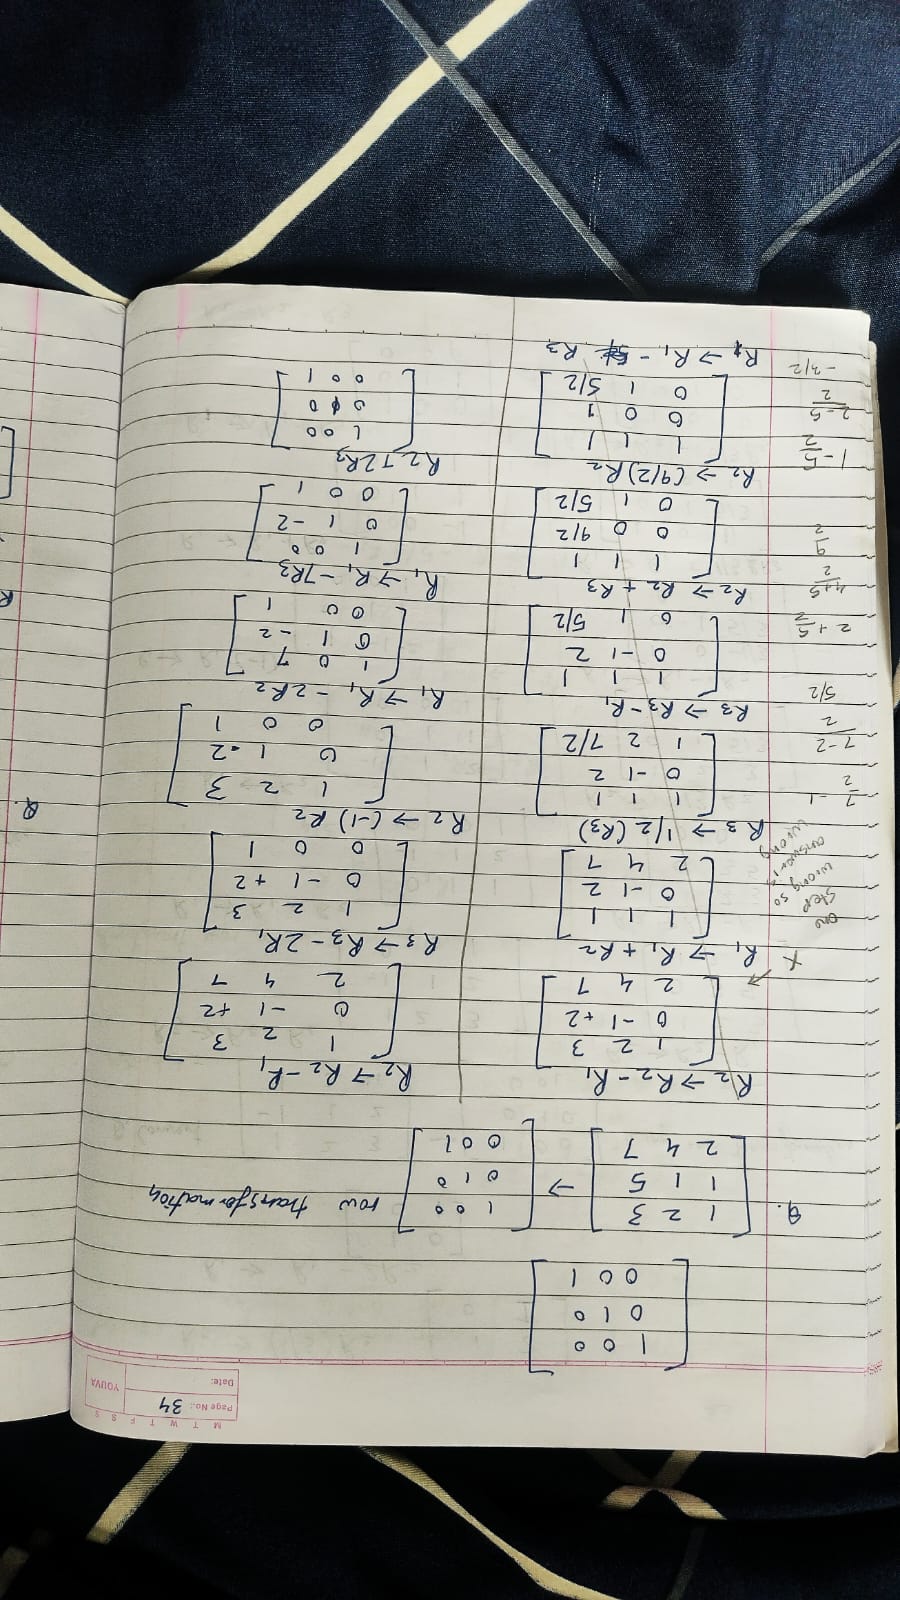 M T W T F S S
Page No.: 34
Date:
YOUVA
1 0 0
0 1 0
0 0 1
Q. [1 2 3] → [1 0 0] row transformation
[1 1 5] [0 1 0]
[2 4 7] [0 0 1]
R2 → R2 - R1
1 2 3
0 -1 +2
2 4 7
X
R1 → R1 + R2
one
step
wrong so
answer is
wrong
1 1 1
0 -1 2
2 4 7
R3 → 1/2 (R3)
7/2 - 1
1 1 1
0 -1 2
1 2 7/2
7-2/2
5/2
R3 → R3 - R1
1 1 1
0 -1 2
0 1 5/2
2 + 5/2
R2 → R2 + R3
4+5/2
9/2
1 1 1
0 0 9/2
0 1 5/2
R2 → (9/2) R2
1 - 5/2
1 1 1
0 0 1
0 1 5/2
2-5/2
-3/2
R1 → R1 - R3
R2 → R2 - R1
1 2 3
0 -1 +2
2 4 7
R3 → R3 - 2R1
1 2 3
0 -1 +2
0 0 1
R2 → (-1) R2
1 2 3
0 1 -2
0 0 1
R1 → R1 - 2R2
1 0 7
0 1 -2
0 0 1
R1 → R1 - 7R3
1 0 0
0 1 -2
0 0 1
R2 + 2R3
1 0 0
0 1 0
0 0 1
Q.
R